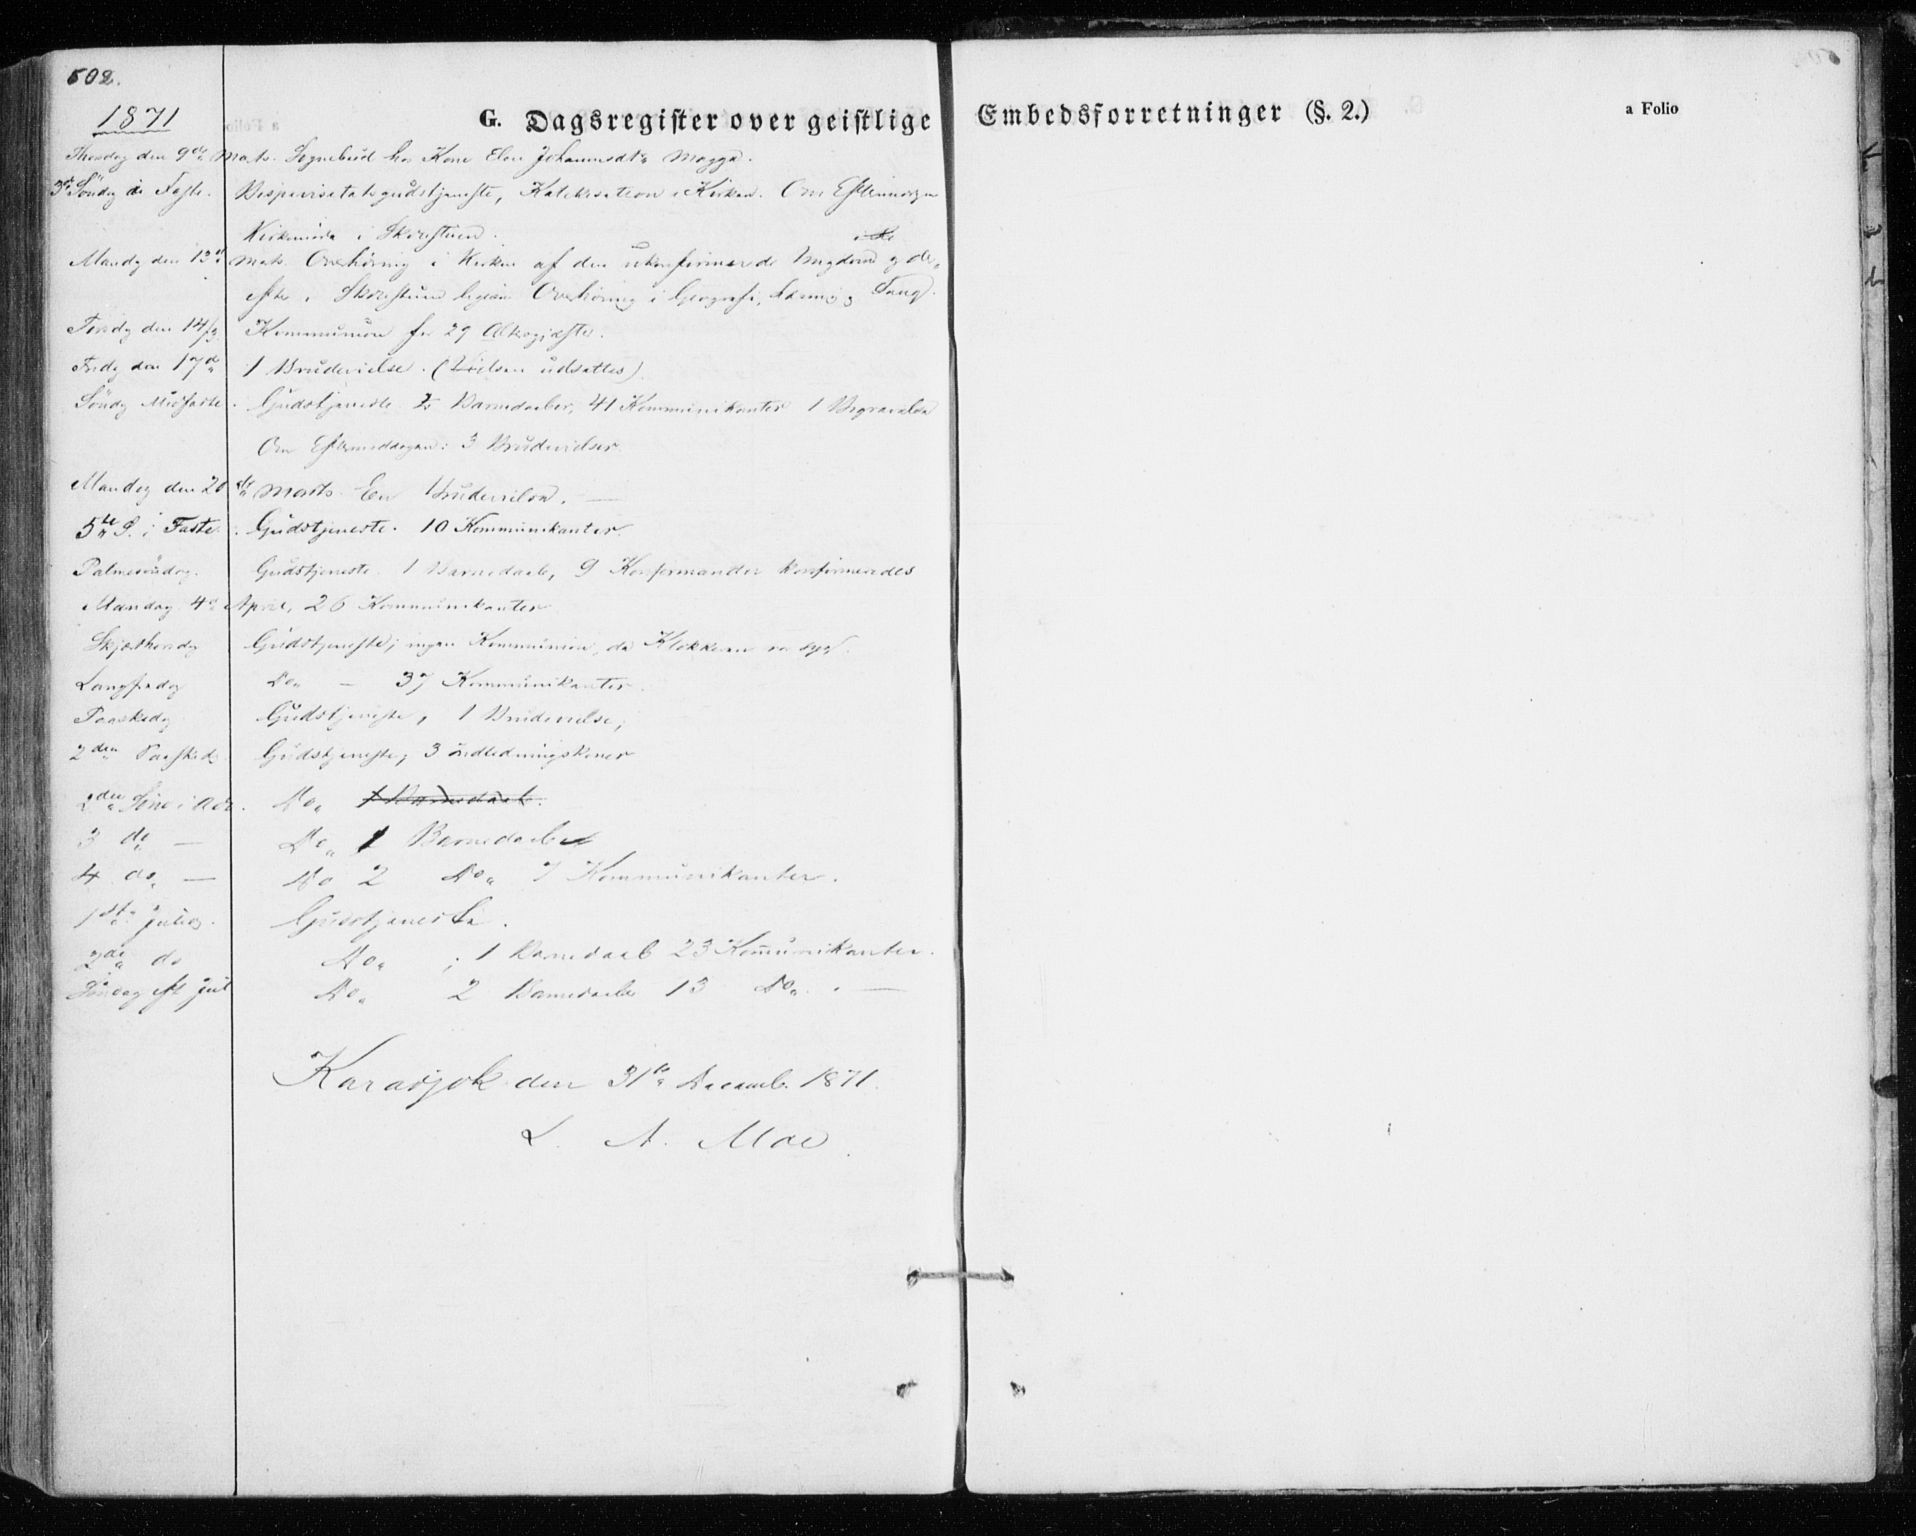 502.
1871
G. Dagsregister over geistlige Embedsforretninger (§. 2.)
a Folio
Thorsdag den 9de Marts. Sognebud hos Kone Elen Johannesdtr Magga.
3die Søndag i Faste. Bispevisitatsgudstjeneste, Katekisation i Kirken. Om Eftermidagen
Kirkemøde i Skolestuen.
Mandag den 13de Marts Overhøring i Kirken af den ukonfirmerede Ungdom og der-
efter i Skolestuen ligesaa Overhøring i Geografi, Læsning og Sang.
Tirsdg den 14/3 Kommunion for 29 Altergjæster.
Fredg den 17de 1 Brudevielse. (Vielsen udsattes)
Søndg Midfaste. Gudstjeneste 2 Barnedaaber, 41 Kommunikanter 1 Begravelse
Om Eftermiddagen: 3 Brudevielser.
Mandag den 20de Marts. En Brudevielse. —
5te S. i Faste. Gudstjeneste. 10 Kommunikanter.
Palmesøndag. Gudstjeneste. 1 Barnedaab, 9 Konfirmander konfirmeredes
Mandag 4de April, 26 Kommunikanter
Skjærthorsdag Gudstjeneste; ingen Kommunion, da Klokkeren var syg.
Langfredag Do — 37 Kommunikanter.
Paaskedg Gudstjeneste, 1 Brudevielse;
2den Paaskedg Gudstjeneste; 3 Indledningskoner
2den Sønd i Adv. Do 1 Barnedaab.
3 do — Do 1 Barnedaab
4 do — Do 2 Do 7 Kommunikanter.
1ste Juledg. Gudstjeneste.
2de do Do ; 1 Barnedaab 23 Kommunikanter.
Søndag eft Jul Do 2 Barnedaab 13 Do —
Karasjok den 31te Decemb. 1871.
L. A. Moe